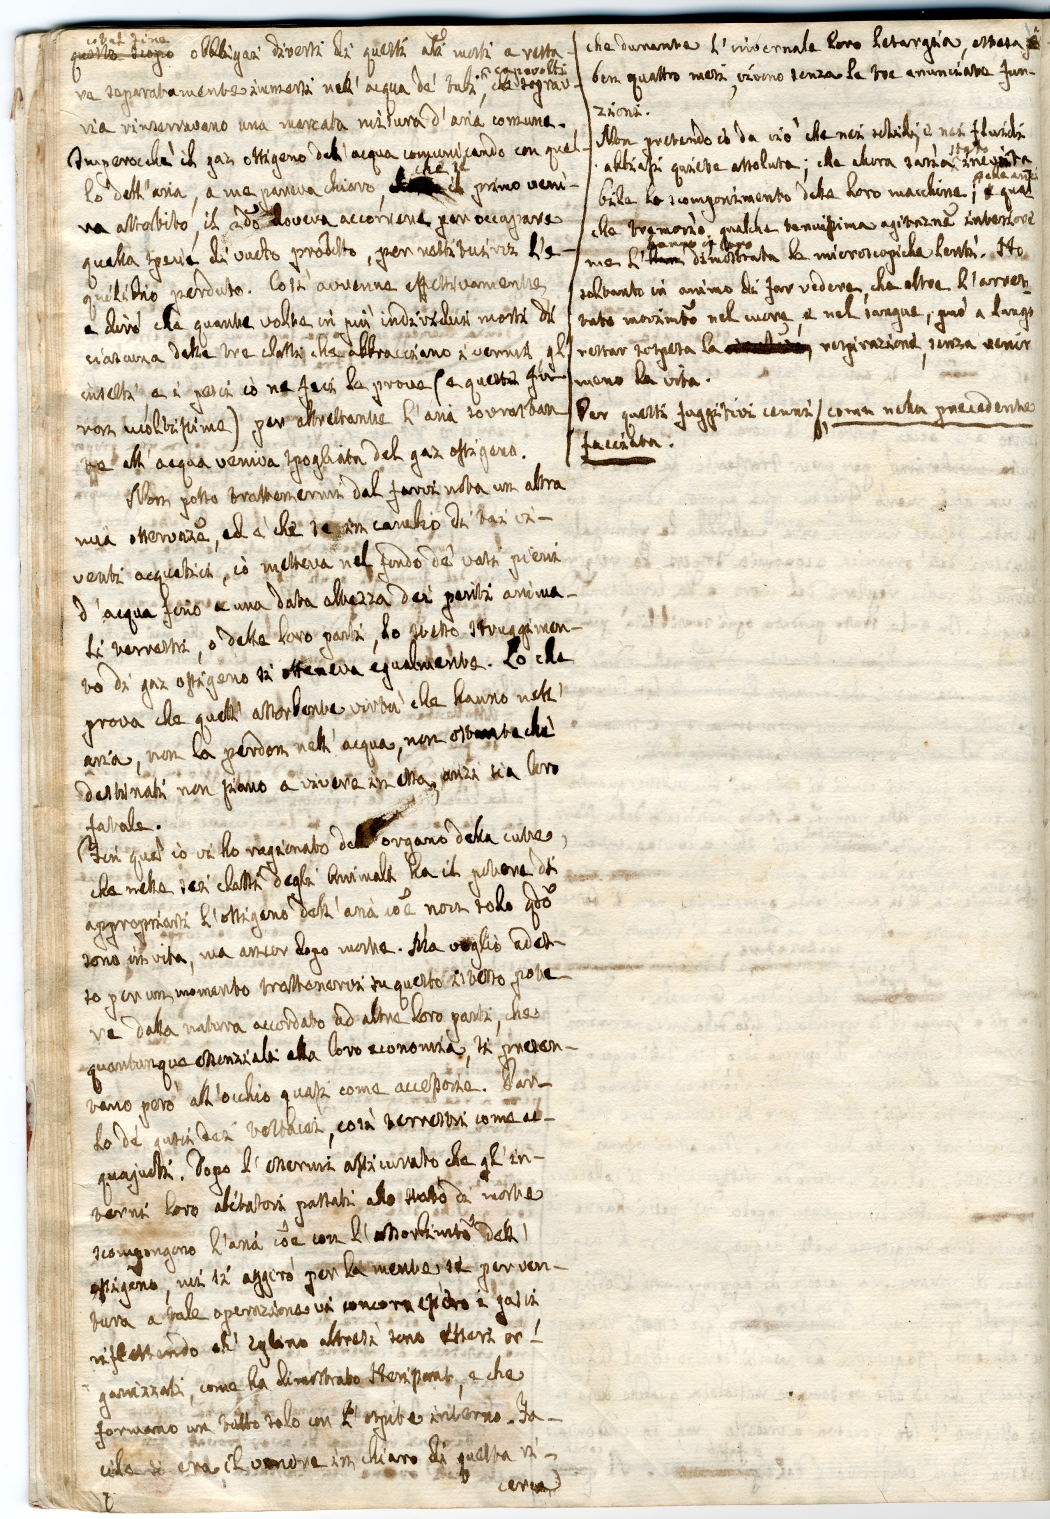 a tal fine
questo scopo obbligai diversi di questi añli morti a resta-
re separatamente immersi nell' acqua de' tubi, che soprav-
capovolti
via rinserravano una marcata mistura d'aria comune.
Imperocchè il gaz ossigeno dell' acqua comunicando con quel-
lo dell' aria, a me pareva chiaro, che se il primo veni-
va assorbito, il 2do doveva accorrere per occupare
quella spezie di vuoto prodotto, per restituirsi l'e-
quilibrio perduto. Così avvenne effettivamente
e dirò che quante volte in più individui morti di
ciascuna delle tre classi che abbracciano i vermi, gl'
insetti e i pesci io ne feci le prove (e queste fu-
ron moltissime) per altrettante l'aria sovrastan-
te all' acqua veniva spogliata del gaz ossigeno.
Non posso trattenermi dal farvi nota un altra
mia osservazẽ, ed è che se in cambio di tai vi-
venti acquatici, io metteva nel fondo de' vasi pieni
d'acqua fino a una data altezza dei periti anima-
li terrestri, o delle loro parti, lo stesso struggimen-
to di gaz ossigeno si otteneva egualmente. Lo che
prova che quell' assorbente virtù che hanno nell'
aria, non la perdon nell' acqua, non ostante che
destinati non siano a vivere in essa, anzi sia loro
fatale.
Fin quì io vi ho ragionato dell' organo della cute,
che nelle sei classi degli Animali ha il potere di
appropriarsi l'ossigeno dell' aria cõe non solo qdõ
sono in vita, ma ancor dopo morte. Ma voglio ades-
so per un momento trattenervi su questo istesso pote-
re dalla natura accordato ad altre loro parti, che
quantunque essenziali alla loro economia, si presen-
tano però all'occhio quasi come accessorie. Par-
lo de' gusci dei testacei, così terrestri come ac-
quajuoli. Dopo l'essermi assicurato che gl'in-
terni loro abitatori passati allo stato di morte
scompongono l'aria cõe con l'assorbimtõ dell'
ossigeno, mi si aggirò per la mente se per ven-
tura a tale operazione vi concorressero i gusci
riflettendo ch' eglino altresì sono esseri or-
ganizzati, come ha dimostrato Herissant, e che
formano un tutto solo con l'ospite interno. Fa-
cile si era il venire in chiaro di questa ri-
cerca
che durante l'invernale loro letargia, estesa a
ben quattro mesi, vivono senza le tre enunciate fun-
zioni.
Non pretendo io da ciò che nei solidi, e nei fluidi
abbiasi quiete assoluta; che allora saria stato inevita-
bile lo scomponimento delle loro macchine; che anzi qual
che tremorìo, qualche tenuissima agitaznẽ interiore
me l'hanno in loro dimostrata le microscopiche lenti. Ho
soltanto in animo di far vedere, che oltre l'arres-
tato movimtõ nel cuore, e nel sangue, può a lungo
restar sospesa la respirazione, senza venir
meno la vita.
Per questi fuggitivi cenni / com nella precedente
facciata.